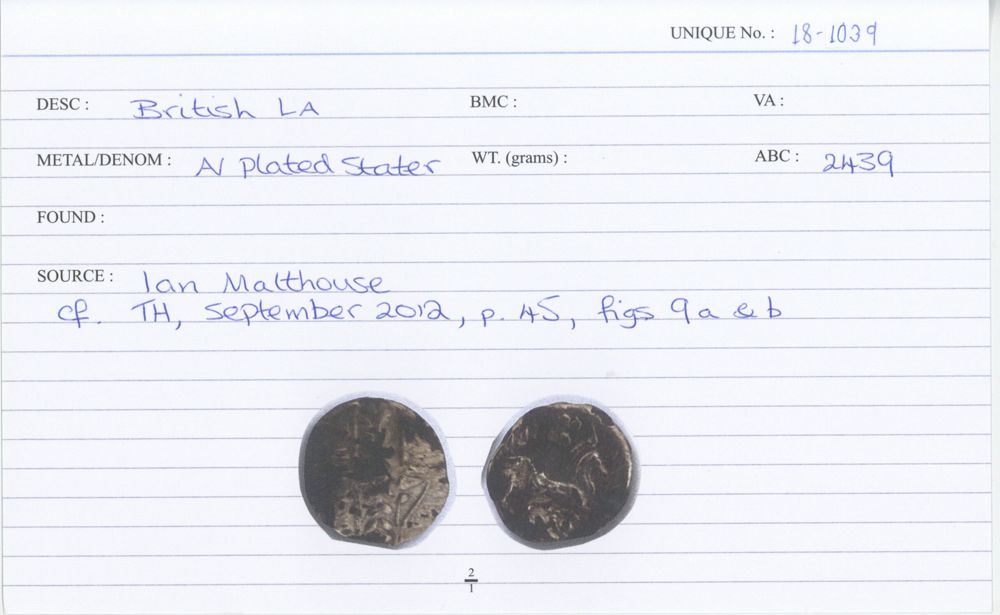 UNIQUE No. : 18-1039
DESC : British LA BMC : VA :
METAL/DENOM : AV Plated Stater WT. (grams) : ABC : 2439
FOUND :
SOURCE : Ian Malthouse
cf. TH, September 2012, p. 45, figs 9a & b
2
1